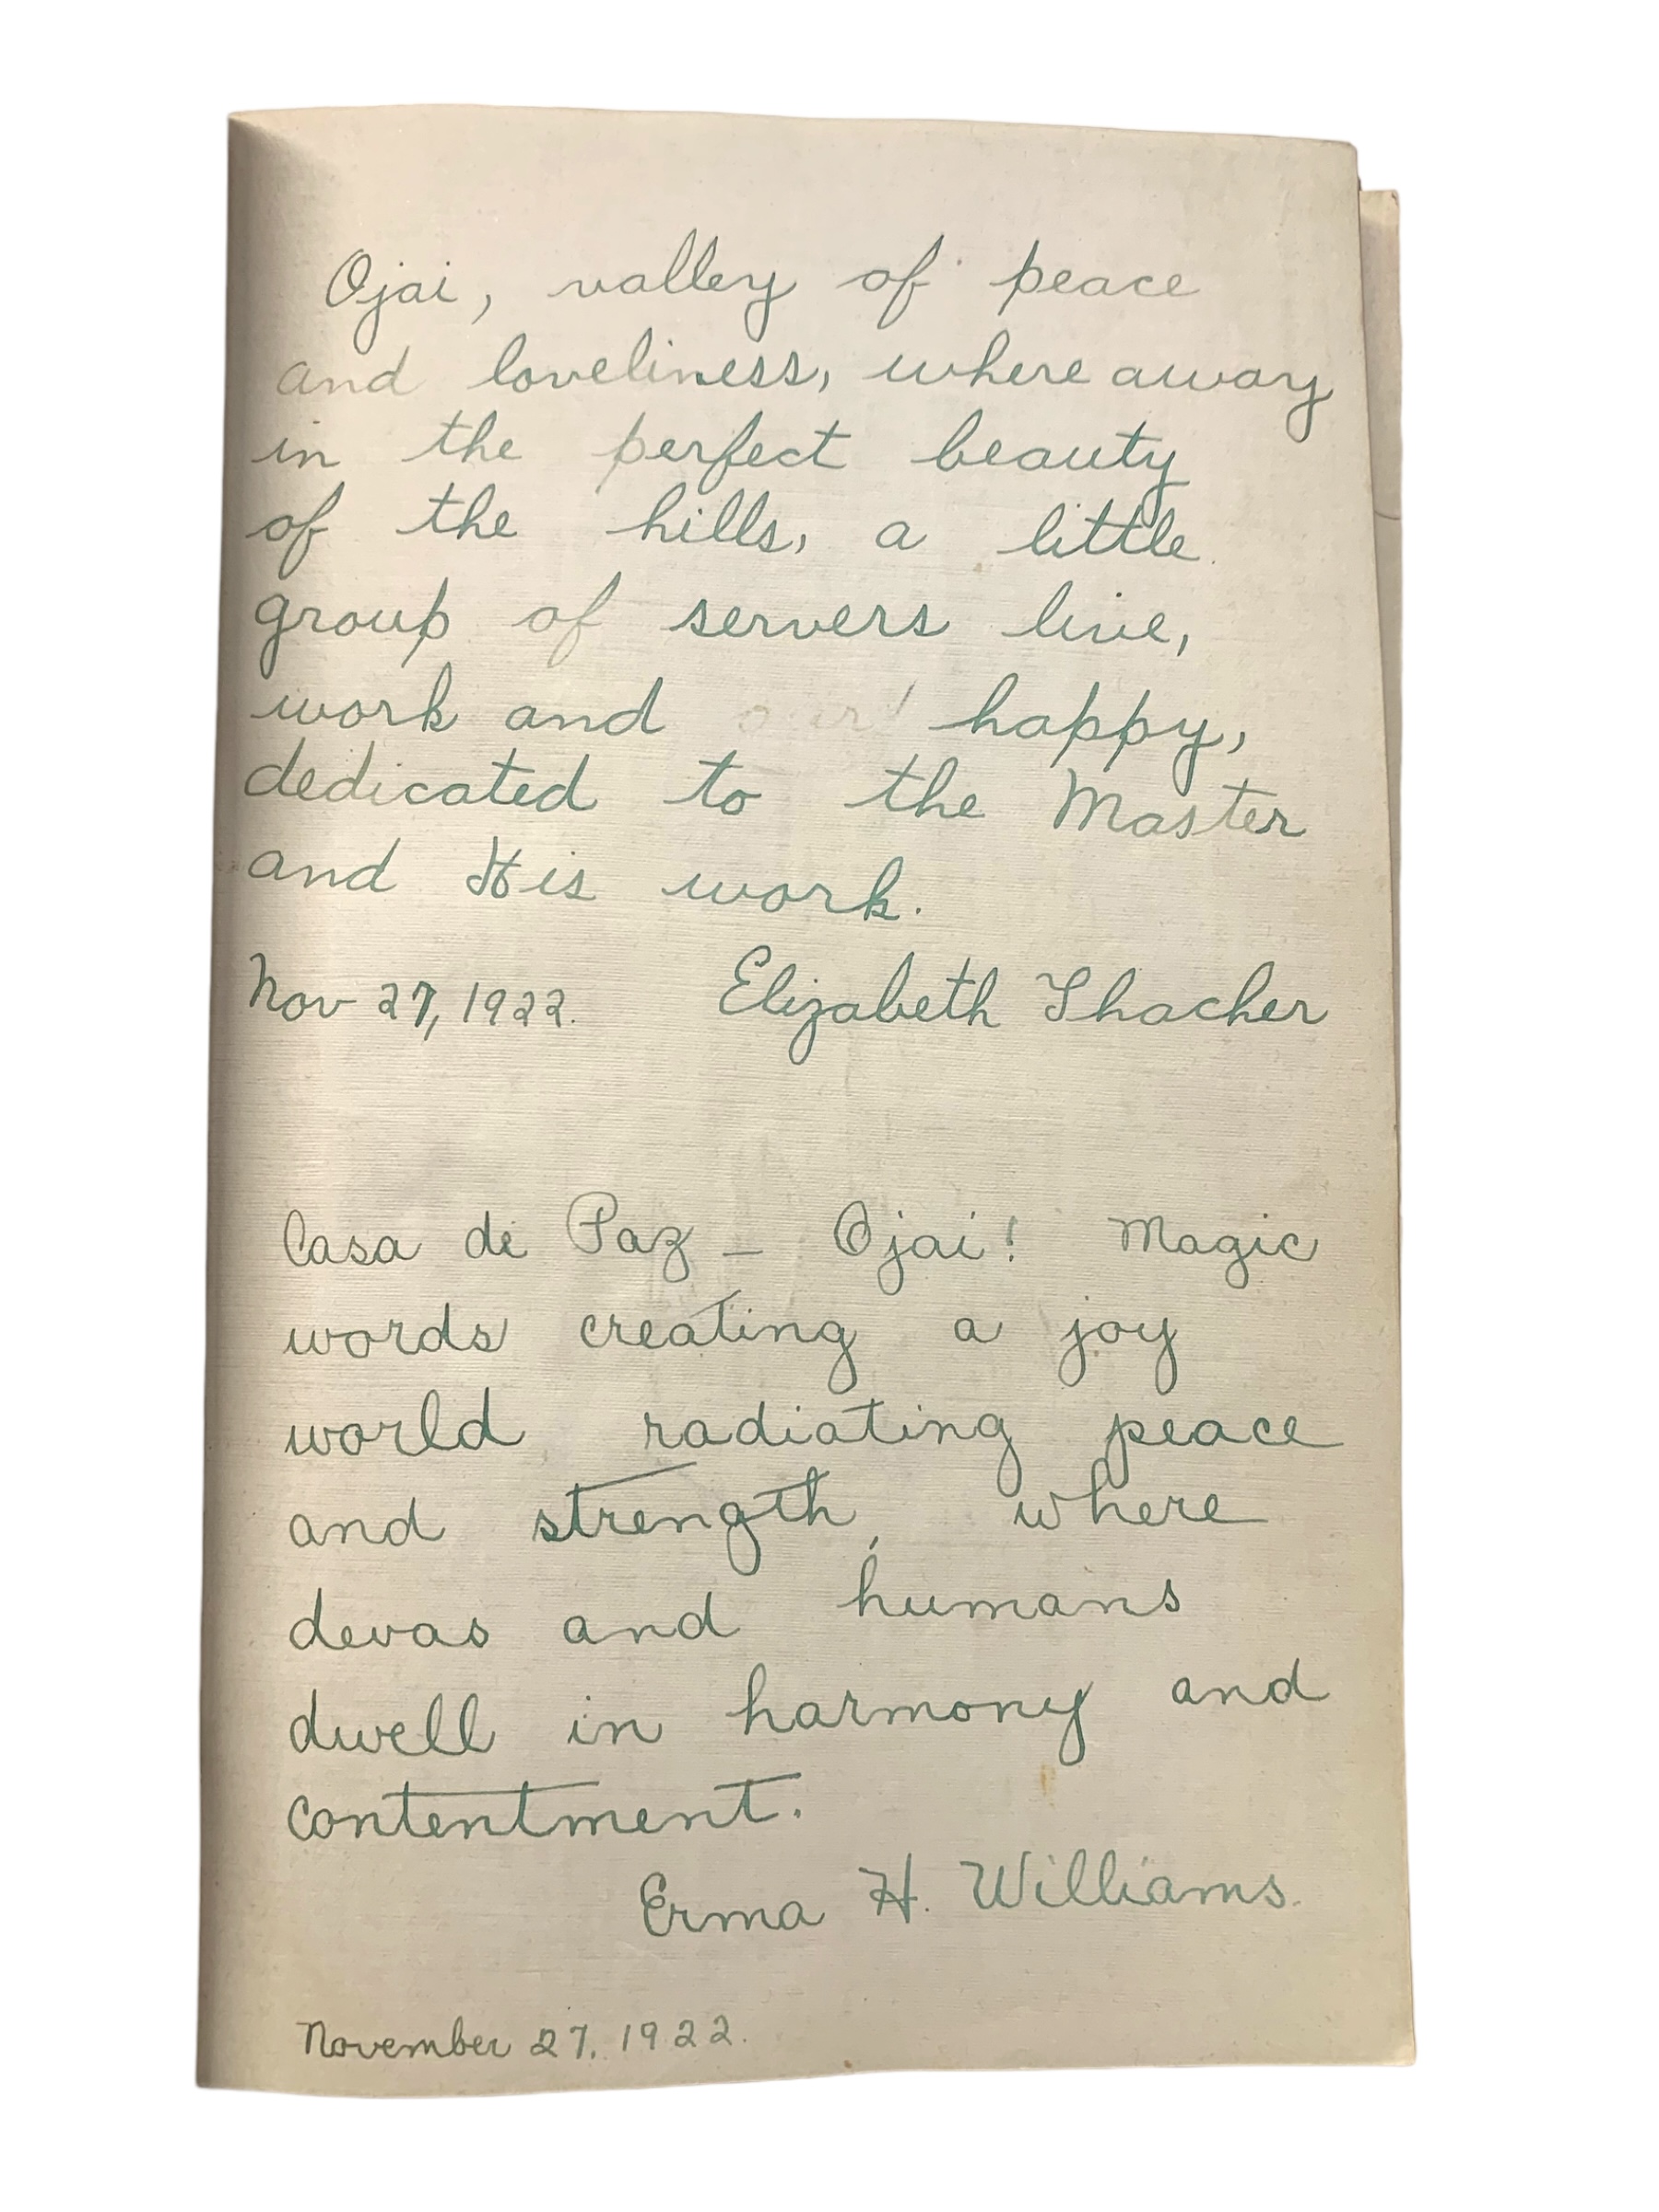 Ojai, valley of peace
and loveliness, where away
in the perfect beauty
of the hills, a little
group of servers live,
work and happy,
dedicated to the Master
and His work.
Nov 27, 1922. Elizabeth Thacher
Casa de Paz - Ojai! Magic
words creating a joy
world radiating peace
and strength, where
devas and humans
dwell in harmony and
contentment.
Erma H. Williams.
November 27, 1922.